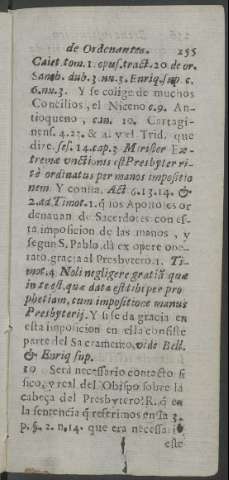 de Ordenantes. 255
Caiet. tom. 1. opus. tract. 20. de or.
dub. 3. nu. 3. Enriq. sup c.
6. nu. 3. Y se colige de muchos
Concilios, el Niceno c. 9. An-
tioqueno, can. 10. Cartagi-
nens. 4. 22. & 2. y el Trid. que
dize. ses. 14. cap. 3 Ex-
tremæ vnctionis est Presbyter ri-
tè ordinatus per manos impositio
nem. Y consta. Act 6. 13. 14. &
2. ad Timot. 1. q̃ los Apostoles or
denauan de Sacerdotes con es-
ta imposicion de las manos, y
segun S. Pablo, dà ex opere ope-
rato, gracia al Presbytero. 1. Ti-
mot. 4 Noli negligere gratiã quæ
in te est, quæ data est tibi per pro
phetiam, cum impositione manus
Presbyterij. Y si se da gracia en
esta imposicion en ella consiste
parte del Sacramento, vide Bell.
& Enriq sup.
10 Serà necessario contacto fi
sico, y real del Obispo sobre la
cabeça del Presbytero? R. q̃ en
la sentencia q̃ referimos en la 3.
p. §. 2. n. 14. que era necessario
este